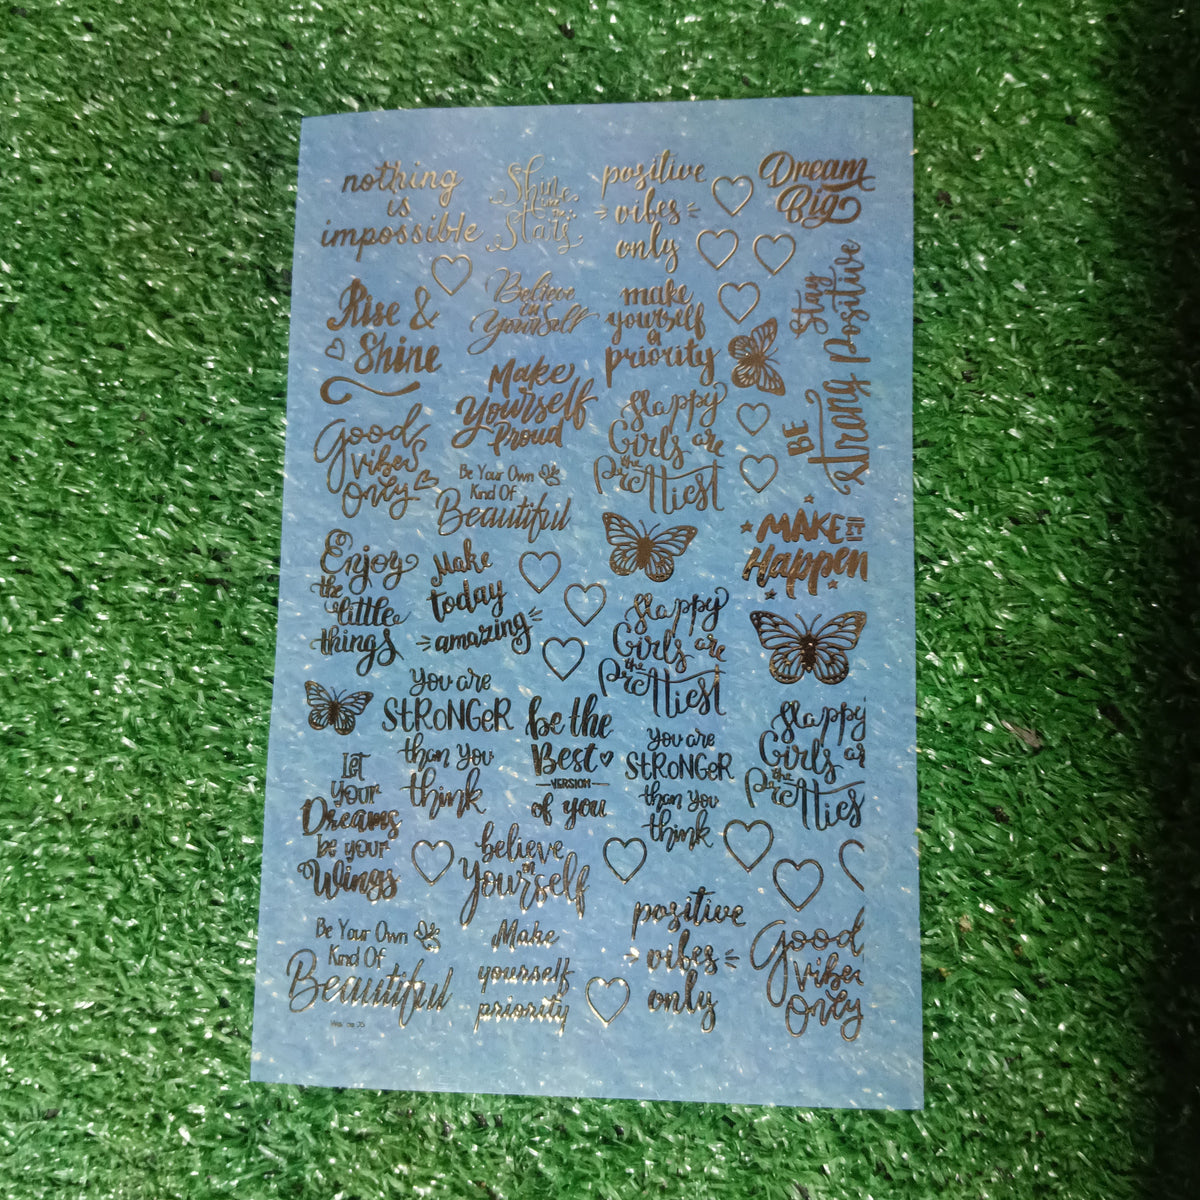 nothing
is
impossible
Shine
like
the
Stars
positive
vibes
only
Dream
Big
Rise &
Shine
Believe
in
Yourself
make
yourself
a
priority
Stay
Positive
BE
Strong
Good
vibes
Only
Make
Yourself
Proud
Happy
Girls are
the
Prettiest
Be Your Own
Kind Of
Beautiful
MAKE IT
Happen
Enjoy
the
little
things
Make
today
amazing
Happy
Girls are
the
Prettiest
You are
STRONGER
than you
think
be the
Best
VERSION
of you
You are
STRONGER
than you
think
Happy
Girls ar
the
Pretties
Let
your
Dreams
be your
Wings
believe
in
Yourself
Be Your Own
Kind Of
Beautiful
Make
yourself
priority
positive
vibes
only
Good
vibes
Only